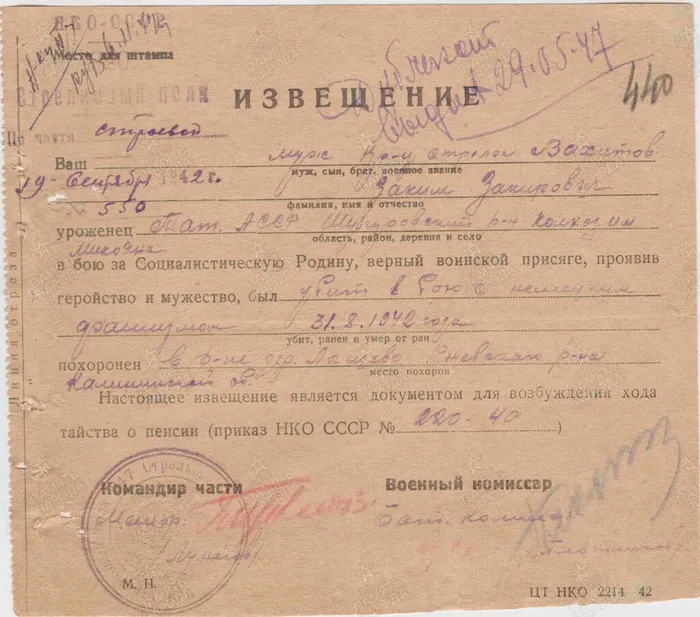 Место для штампа
Дубликат
Выдан 29.05.47
440
ИЗВЕЩЕНИЕ
По части строевой
Ваш муж кр-ц стрелок Вахитов
19 Сентября 1942 г.
муж, сын, брат, военное звание
Заким Закирович
фамилия, имя и отчество
№ 550
уроженец Тат. АССР р-н колхоз им
область, район, деревня и село
Микояна
в бою за Социалистическую Родину, верный воинской присяге, проявив
геройство и мужество, был убит в бою с немецким
фашизмом 31.8.1942 года
убит, ранен и умер от ран
похоронен в р-не дер. Ржевского р-на
место похорон
Калининской об.
Настоящее извещение является документом для возбуждения хода
тайства о пенсии (приказ НКО СССР № 220-40)
Командир части
Военный комиссар
Майор
Бат. комиссар
М. П.
ЦТ НКО 2214 42
Линия отреза